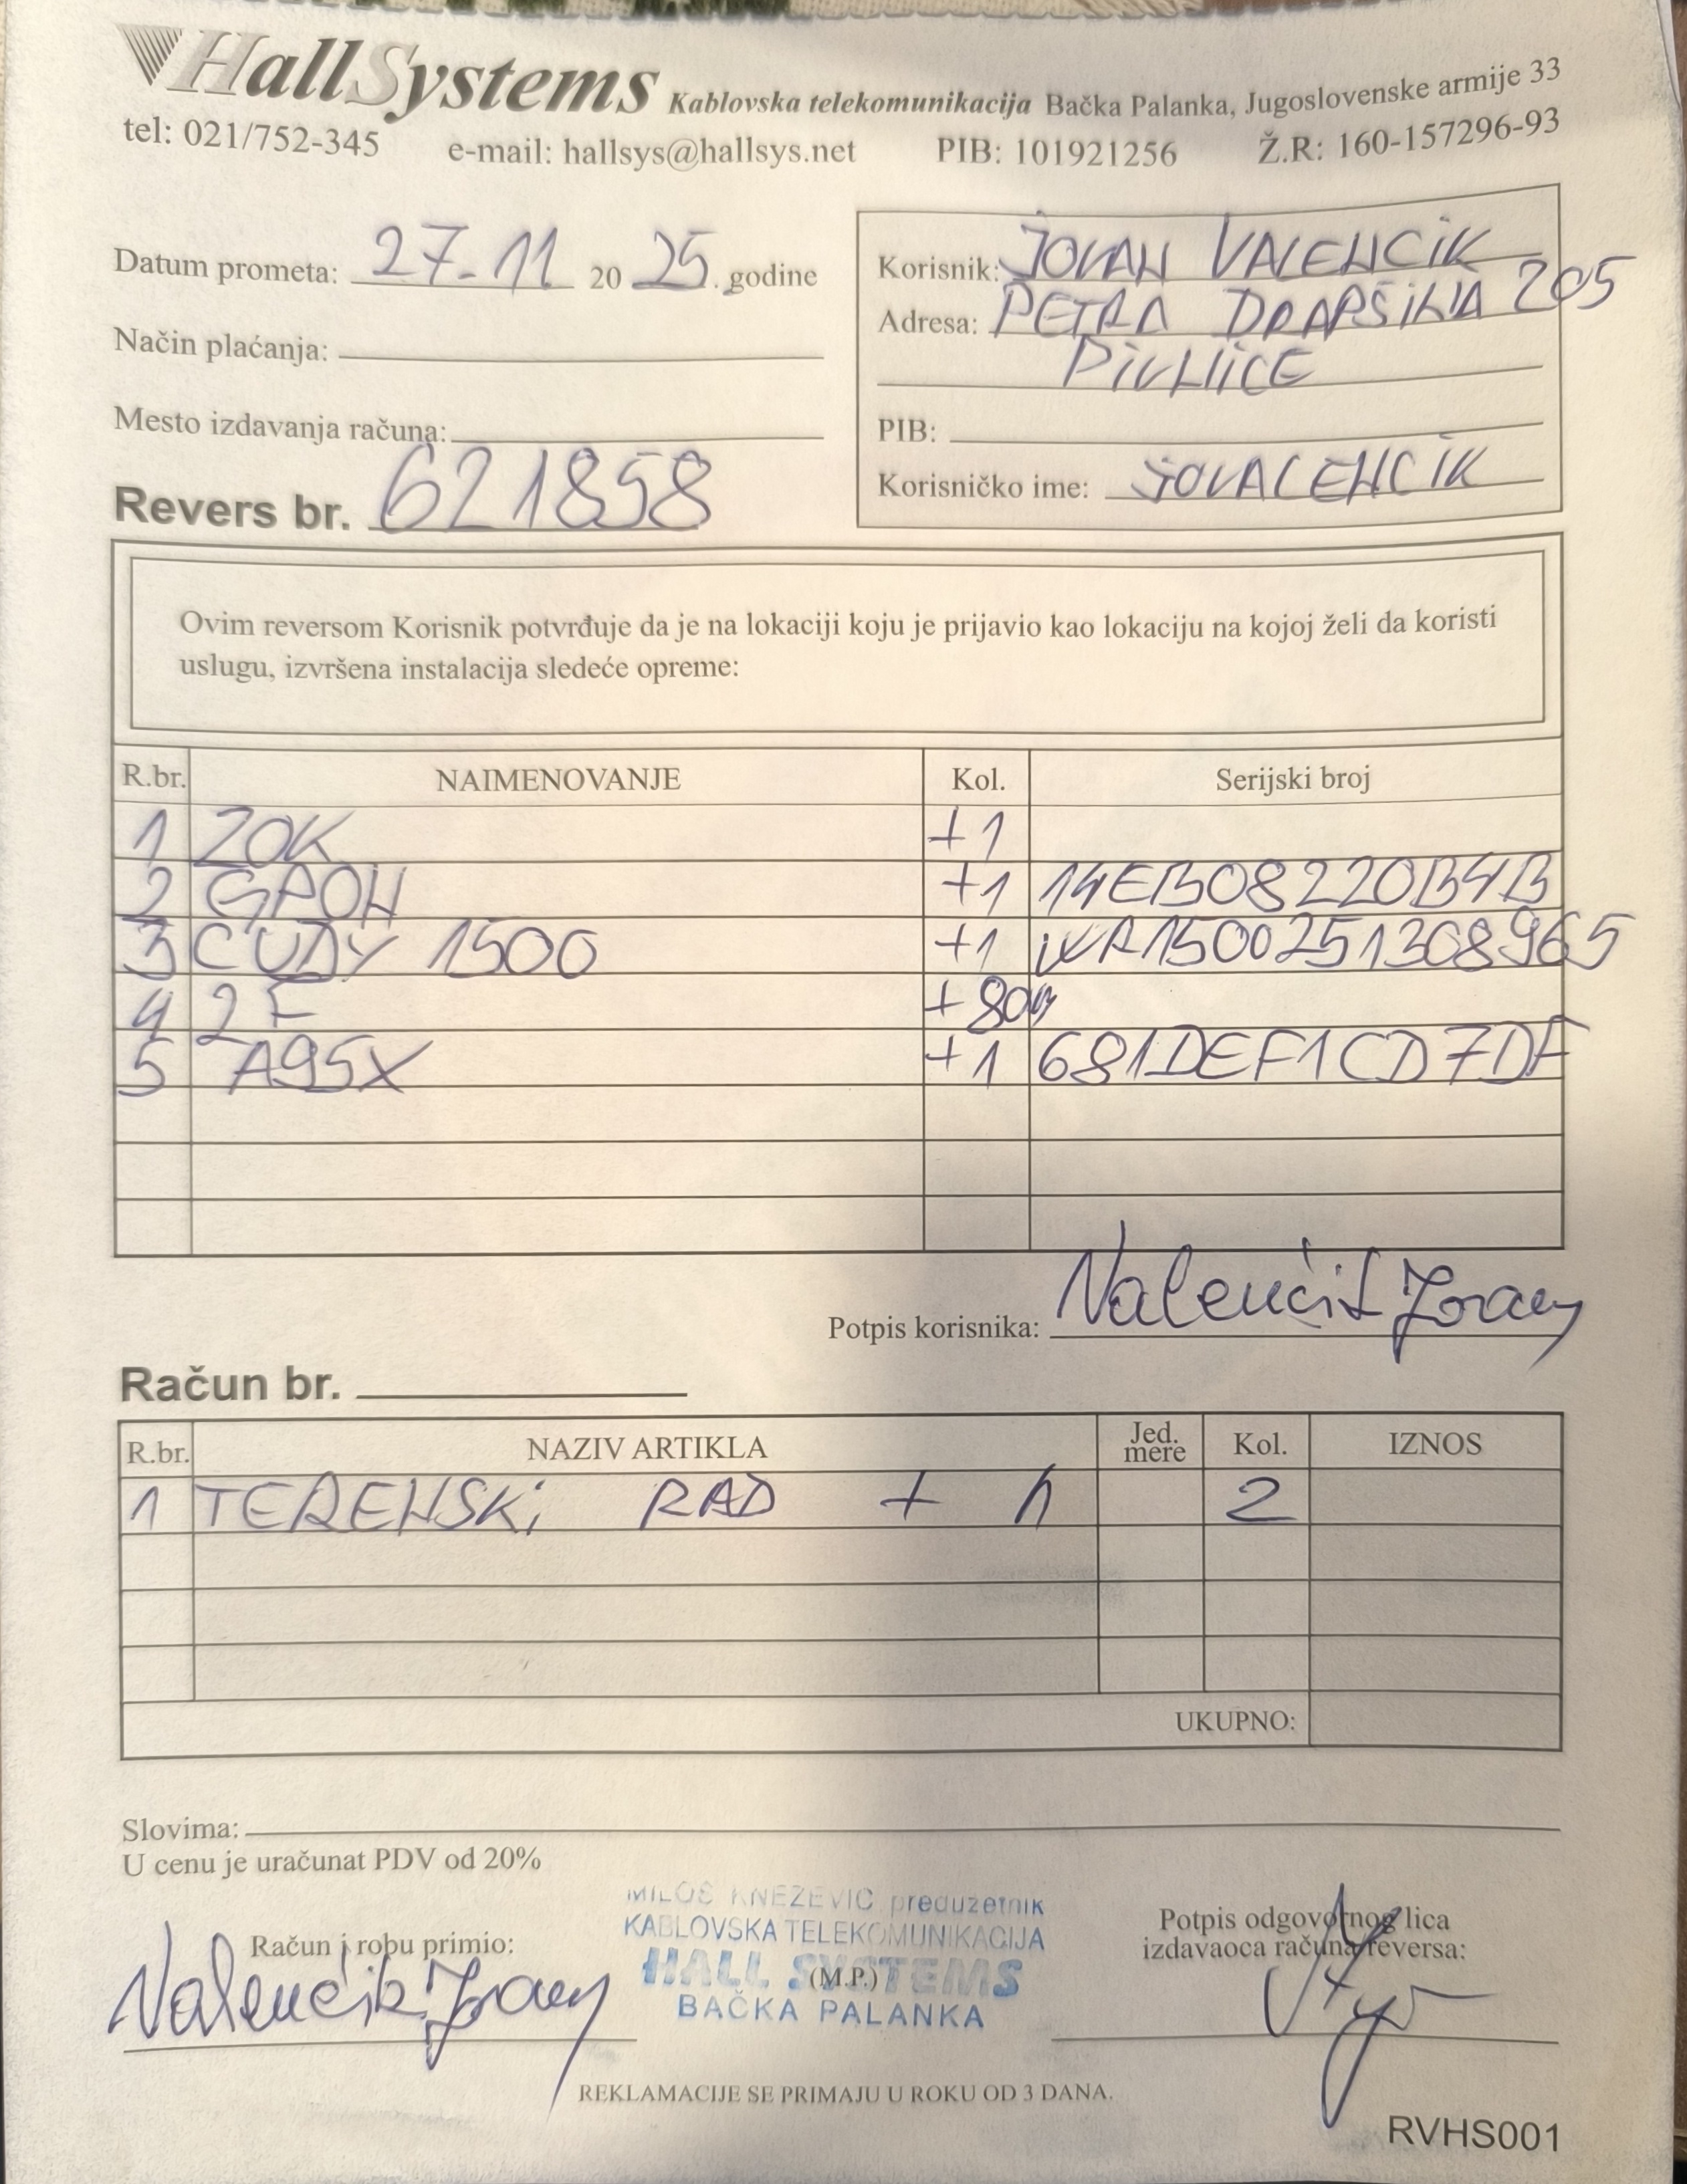 HallSystems Kablovska telekomunikacija Bačka Palanka, Jugoslovenske armije 33
tel: 021/752-345 e-mail: hallsys@hallsys.net PIB: 101921256 Ž.R: 160-157296-93
Datum prometa: 27-11 2025. godine
Način plaćanja:
Mesto izdavanja računa:
Revers br. 621858
Korisnik: JOVAN VALENCIK
Adresa: PETRA DRAPŠINA 205
PIVNICE
PIB:
Korisničko ime: JOVALENCIK
Ovim reversom Korisnik potvrđuje da je na lokaciji koju je prijavio kao lokaciju na kojoj želi da koristi
uslugu, izvršena instalacija sledeće opreme:
R.br. NAIMENOVANJE Kol. Serijski broj
1 ZOK +1
2 GPON +1 14EB08220B4B
3 CUDY 1500 +1 WR1500251308965
4 2F +80m
5 A95X +1 681DEF1CD7DF
Potpis korisnika: Valenčik Jovan
Račun br.
R.br. NAZIV ARTIKLA Jed. mere Kol. IZNOS
1 TERENSKI RAD + h 2
UKUPNO:
Slovima:
U cenu je uračunat PDV od 20%
Račun i robu primio:
Valenčik Jovan
MILOŠ KNEŽEVIĆ preduzetnik
KABLOVSKA TELEKOMUNIKACIJA
HALL SYSTEMS
(M.P.)
BAČKA PALANKA
Potpis odgovornog lica
izdavaoca računa/reversa:
REKLAMACIJE SE PRIMAJU U ROKU OD 3 DANA.
RVHS001